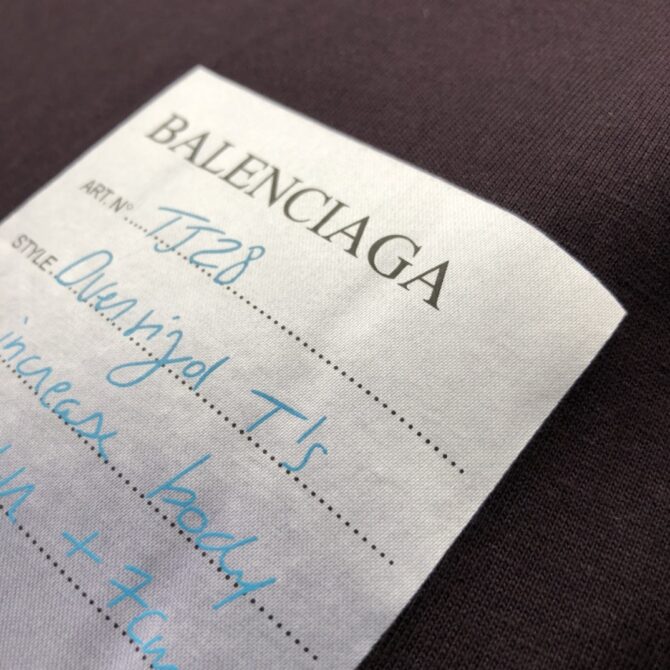 BALENCIAGA
ART. Nº TJ28
STYLE. Oversized T's
increase body
+ 7cm